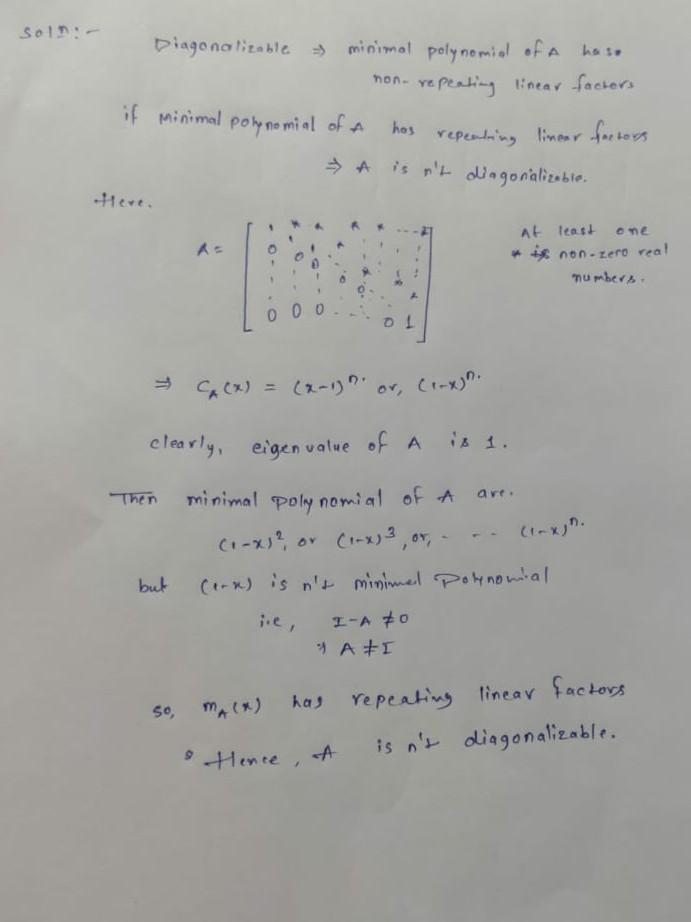 Soln:-
Diagonalizable ⇒ minimal polynomial of A has
non-repeating linear factors
if minimal polynomial of A has repeating linear factors
⇒ A is n't diagonalizable.
Here.
A =
At least one
* is non-zero real
numbers.
0 0 0 . . . 0 1
⇒ C_A(x) = (x-1)^n. or, (1-x)^n.
clearly, eigen value of A is 1.
Then minimal polynomial of A are.
(1-x)^2, or (1-x)^3, or, - - - (1-x)^n.
but (1-x) is n't minimal polynomial
i.e, I-A ≠ 0
⇒ A ≠ I
so, m_A(x) has repeating linear factors
Hence, A is n't diagonalizable.